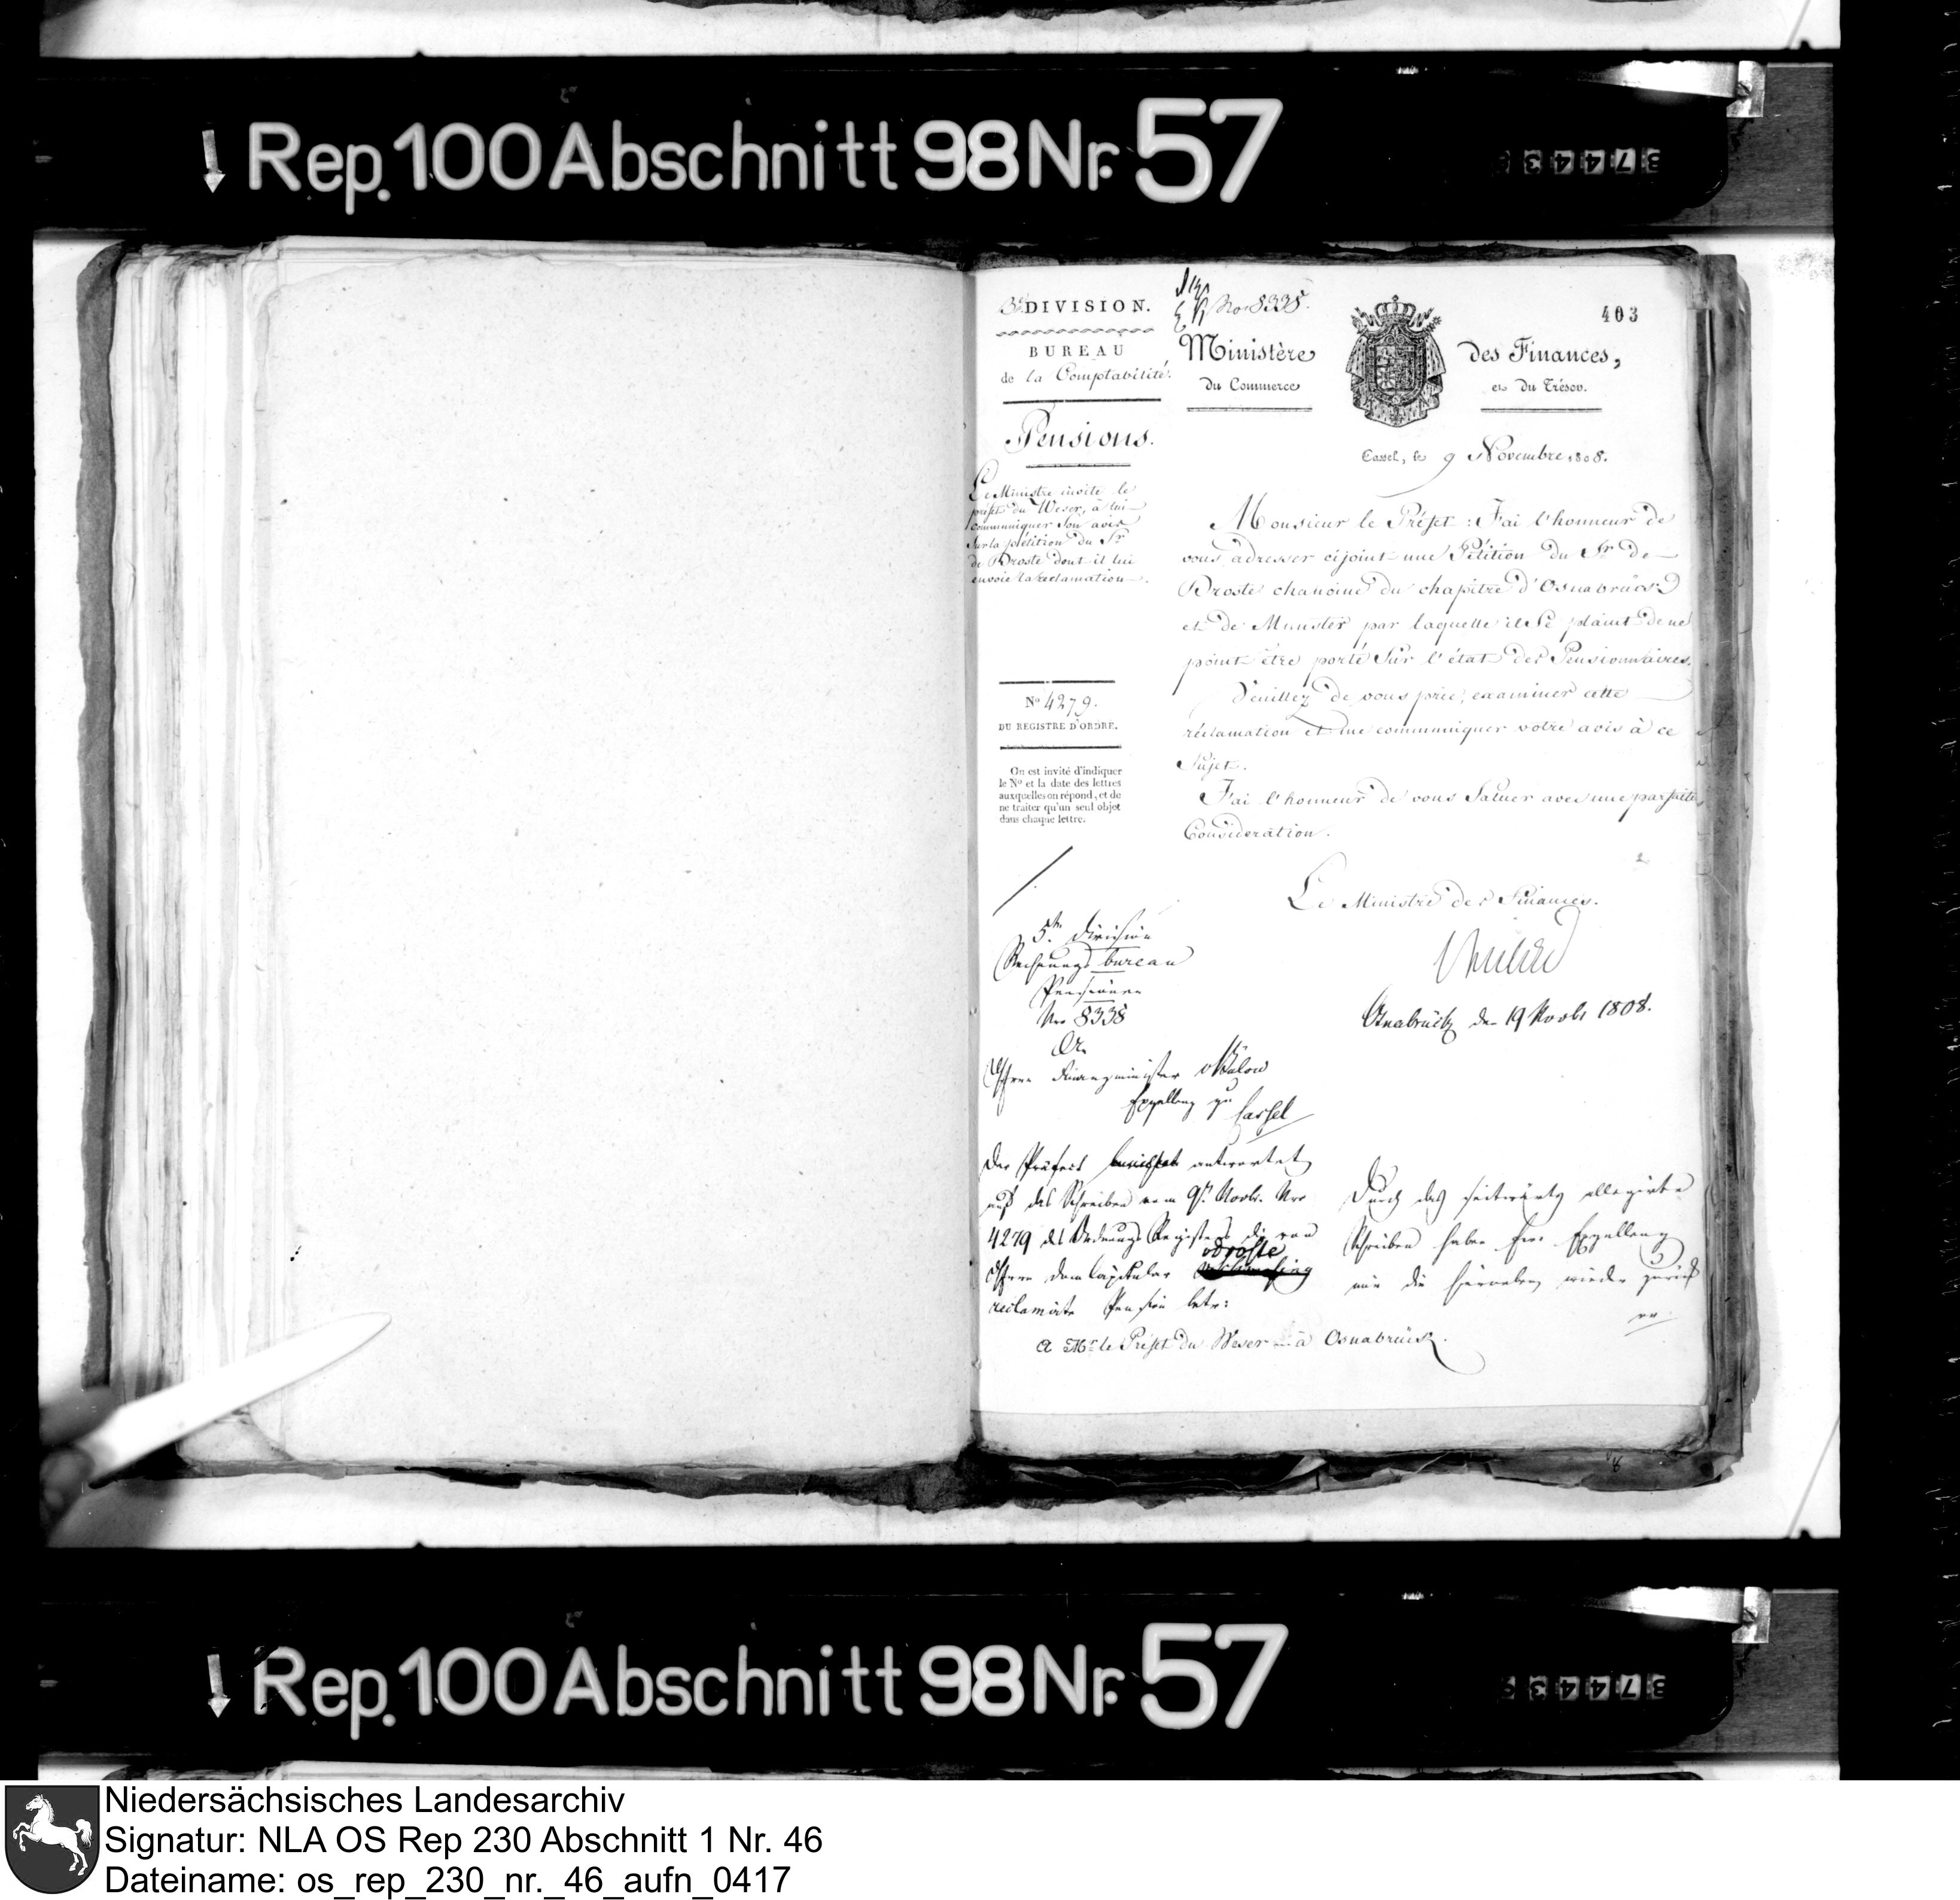 Rep. 100 Abschnitt 98 Nr. 57
37443
3e DIVISION.
BUREAU
de la Comptabilité.
Pensions.
Le Ministre invite le
préfet du Weser, à lui
communiquer son avis
sur la pétition du Sr
de Droste dont il lui
envoie la réclamation.
No 4279.
DU REGISTRE D'ORDRE.
On est invité d'indiquer
le No et la date des lettres
auxquelles on répond, et de
ne traiter qu'un seul objet
dans chaque lettre.
No 8338.
403
Ministère des Finances,
du Commerce et du Trésor.
Cassel, le 9 Novembre 1808.
Monsieur le Préfet: J'ai l'honneur de
vous adresser cijoint une Pétition du Sr. de
Droste chanoine du chapitre d'Osnabrück
et de Munster par laquelle il se plaint de ne
point être porté sur l'état des Pensionnaires.
Veuillez je vous prie, examiner cette
réclamation et me communiquer votre avis à ce
Sujet.
J'ai l'honneur de vous Saluer avec une parfaite
Considération.
Le Ministre des Finances.
5te Division
Rechnungs bureau
Pensionen
Nro 8338
An
Herrn Finanzminister v Bülow
Exzellenz zu Cassel
Osnabrück den 19 Novbr 1808.
Der Präfect berichtet antwortet
auf das Schreiben vom 9t. Novbr. Nro
4279 des Ordnungs Registers die von
vDroste
Herrn Domkapitular
reclamirte Pension betr:
Durch das seitwärts allegirte
Schreiben haben Ew. Exzellenz
mir die hierneben wieder zurück
A Mr. le Préfet du Weser à Osnabrück.
Rep. 100 Abschnitt 98 Nr. 57
37443
Niedersächsisches Landesarchiv
Signatur: NLA OS Rep 230 Abschnitt 1 Nr. 46
Dateiname: os_rep_230_nr._46_aufn_0417